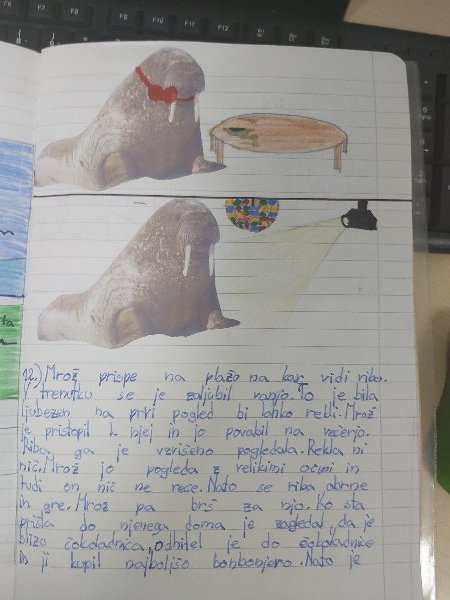 12.) Mrož prispe na plažo na kar vidi ribo.
V trenutku se je zaljubil vanjo. To je bila
ljubezen na prvi pogled bi lahko rekli. Mrož
je pristopil k njej in jo povabil na večerjo.
Riba ga je vzvišeno pogledala. Rekla ni
nič. Mrož jo pogleda z velikimi očmi in
tudi on nič ne reče. Nato se riba obrne
in gre. Mrož pa brž za njo. Ko sta
prišla do njenega doma je zagledal, da je
blizu čokoladnica, Odhitel je do čokoladnice
in ji kupil najboljšo bonbonjero. Nato je
F6 F7 F8 F9 F10 F11 F12